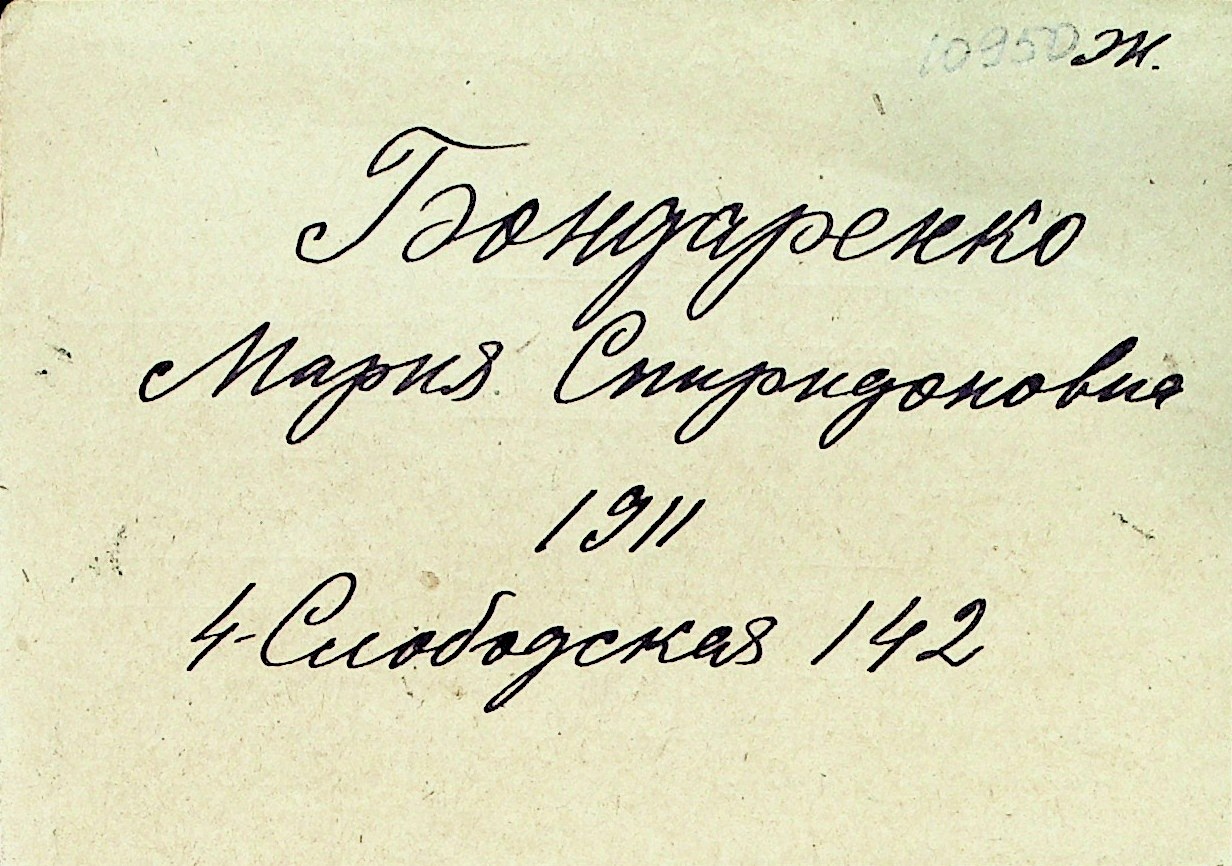 10950 ж.
Бондаренко
Мария Спиридоновна
1911
4-Слободская 142